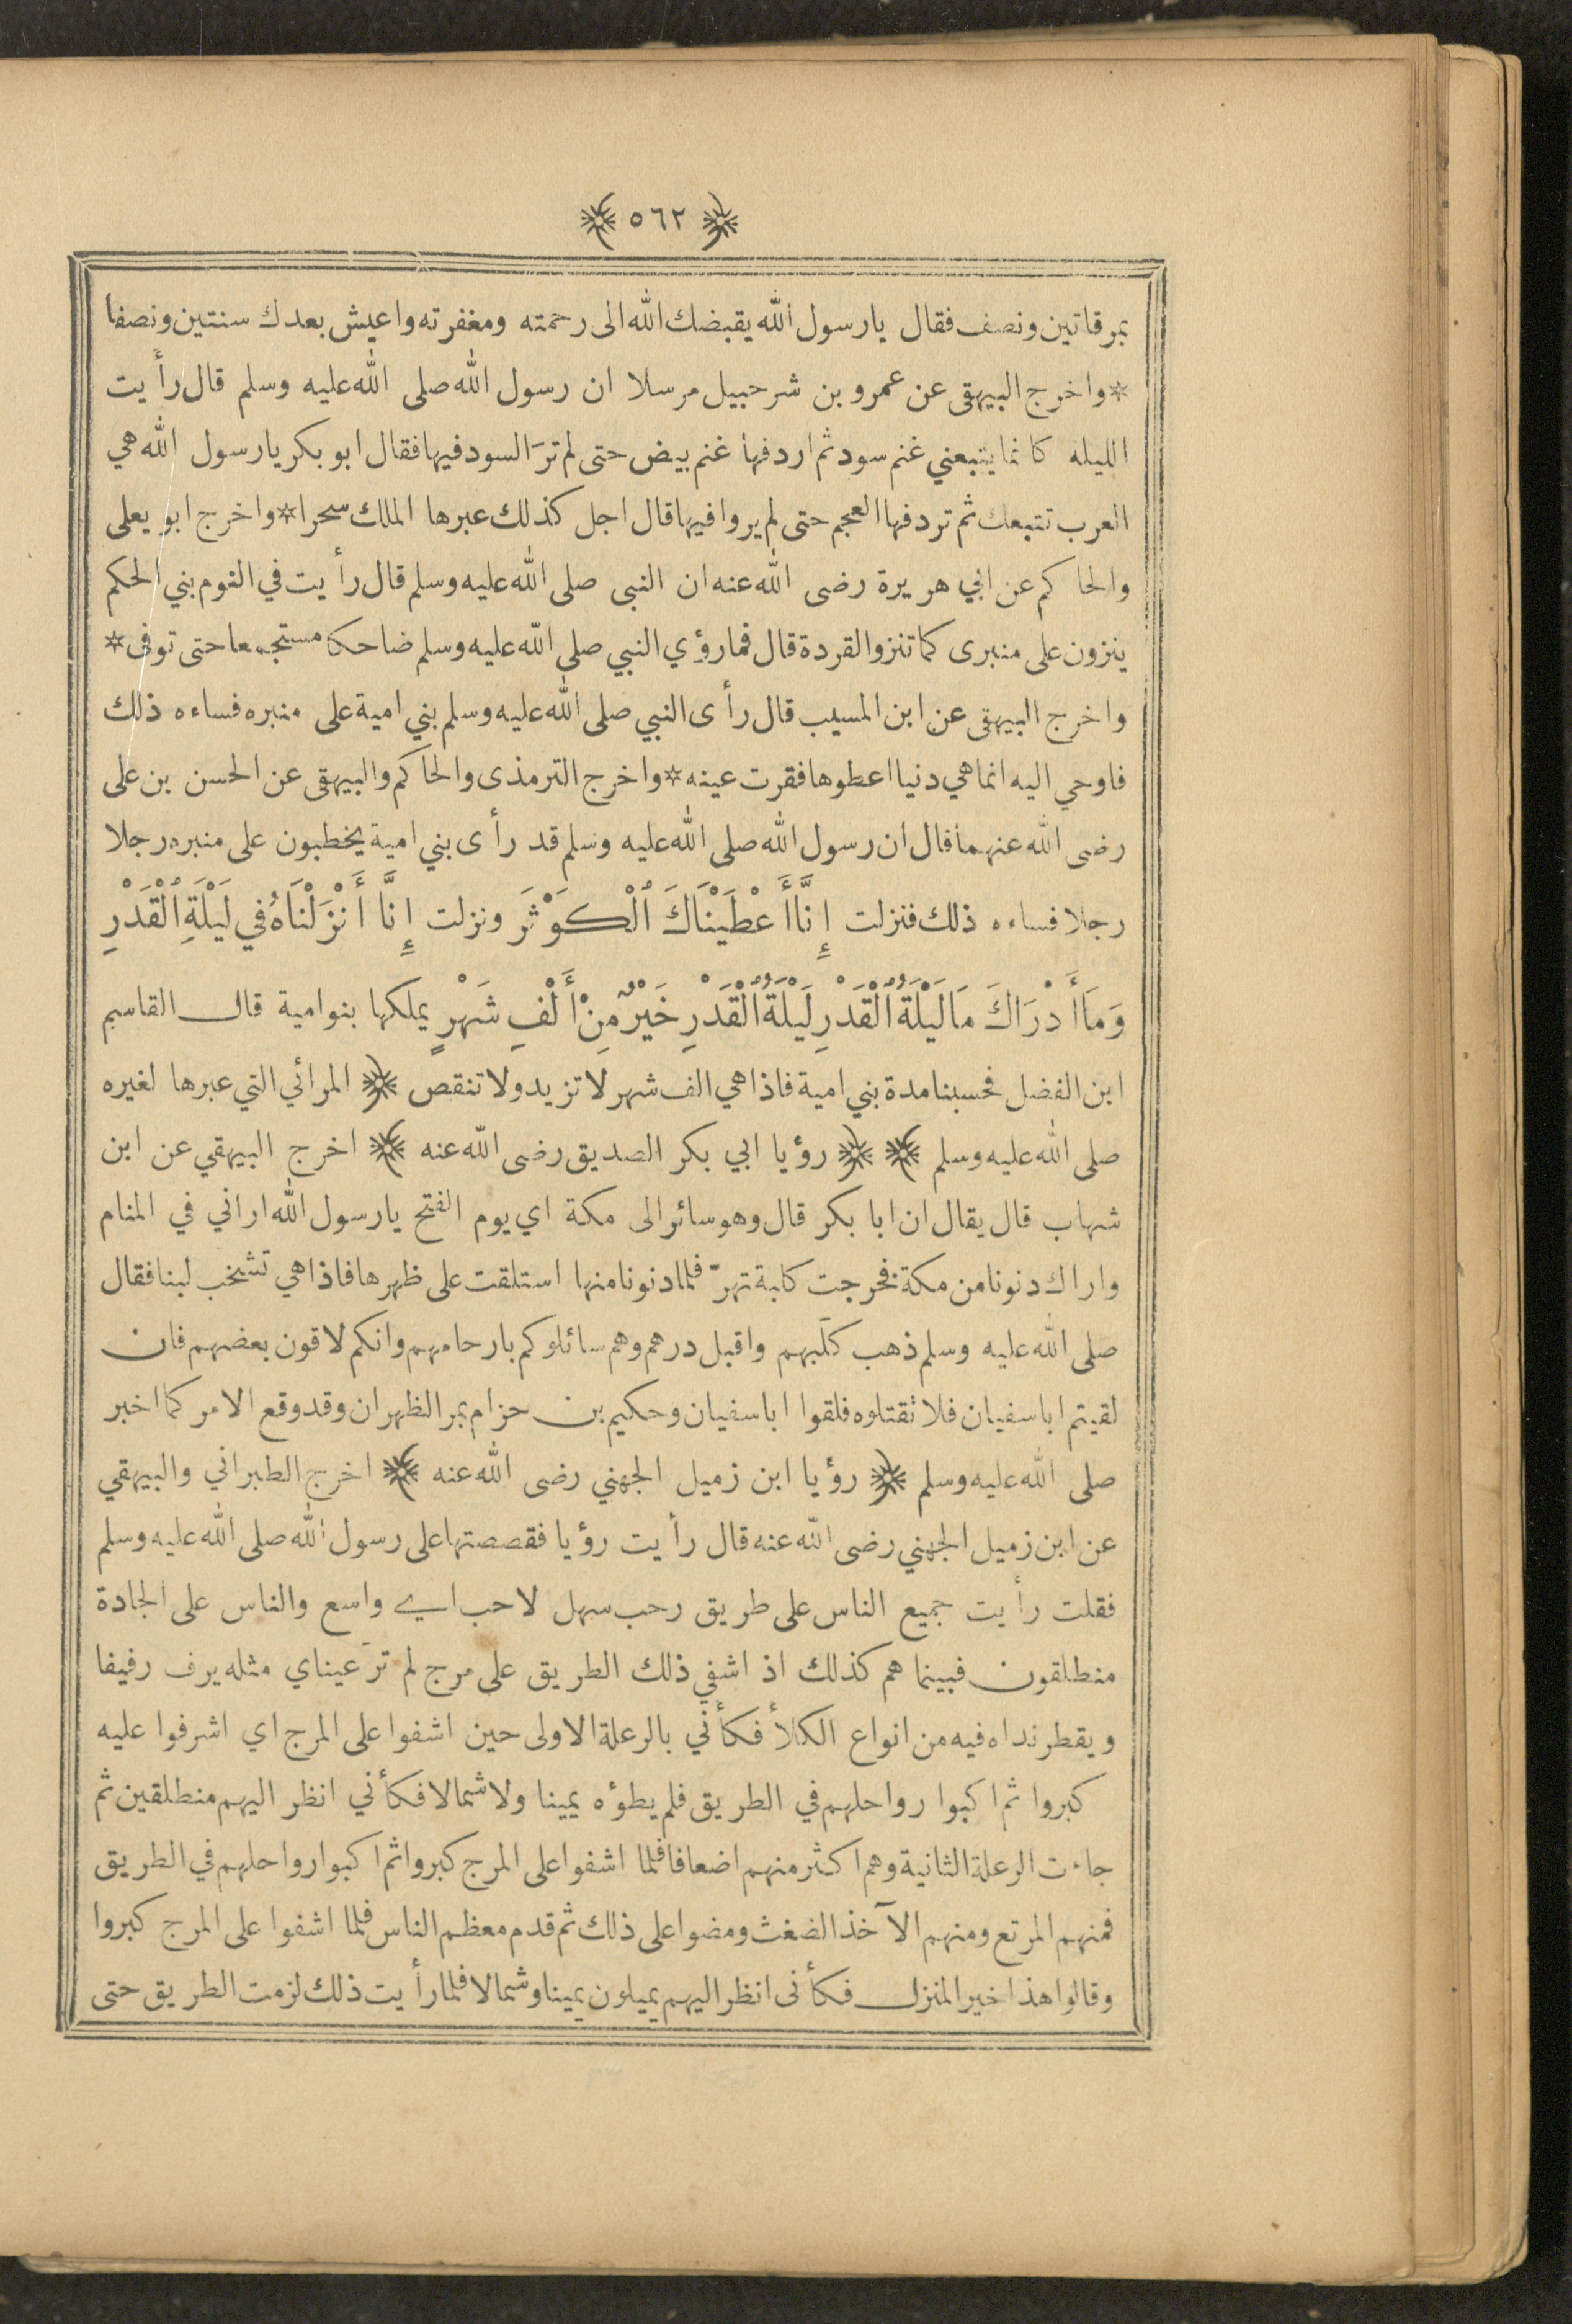 ﴿ ٥٦٢ ﴾
بمرقاتين ونصف فقال يارسول الله يقبضك الله الى رحمته ومغفرته واعيش بعدك سنتين ونصفا
*واخرج البيهقى عن عمرو بن شرحبيل مرسلا ان رسول الله صلى الله عليه وسلم قال رأيت
الليلة كانما يتبعني غنم سود ثم اردفها غنم بيض حتى لم ترَ السود فيها فقال ابو بكر يارسول الله هي
العرب تتبعك ثم تردفها العجم حتى لم يروا فيها قال اجل كذلك عبرها الملك سحرا*واخرج ابو يعلى
والحاكم عن ابي هريرة رضى الله عنه ان النبى صلى الله عليه وسلم قال رأيت في النوم بني الحكم
ينزون على منبرى كما تنزو القردة قال فما رؤي النبي صلى الله عليه وسلم ضاحكا مستجمعا حتى توفى*
واخرج البيهقى عن ابن المسيب قال رأى النبي صلى الله عليه وسلم بني امية على منبره فساءه ذلك
فاوحي اليه انما هي دنيا اعطوها فقرت عينه*واخرج الترمذى والحاكم والبيهقى عن الحسن بن على
رضى الله عنهما قال ان رسول الله صلى الله عليه وسلم قد رأى بني امية يخطبون على منبره رجلا
رجلا فساءه ذلك فنزلت إِنَّا أَعْطَيْنَاكَ ٱلْكَوْثَرَ ونزلت إِنَّا أَنْزَلْنَاهُ فِي لَيْلَةِ ٱلْقَدْرِ
وَمَا أَدْرَاكَ مَا لَيْلَةُ ٱلْقَدْرِ لَيْلَةُ ٱلْقَدْرِ خَيْرٌ مِنْ أَلْفِ شَهْرٍ يملكها بنو امية قال القاسم
ابن الفضل فحسبنا مدة بني امية فاذا هي الف شهر لا تزيد ولا تنقص ﴿ المرائي التي عبرها لغيره
صلى الله عليه وسلم ﴾ ﴿ رؤيا ابي بكر الصديق رضى الله عنه ﴾ اخرج البيهقي عن ابن
شهاب قال يقال ان ابا بكر قال وهو سائر الى مكة اي يوم الفتح يارسول الله اراني في المنام
واراك دنونا من مكة فخرجت كلبة تهرّ فلما دنونا منها استلقت على ظهرها فاذا هي تشخب لبنا فقال
صلى الله عليه وسلم ذهب كلَبهم واقبل درهم وهم سائلوكم بارحامهم وانكم لاقون بعضهم فان
لقيتم ابا سفيان فلا تقتلوه فلقوا ابا سفيان وحكيم بن حزام بمر الظهران وقد وقع الامر كما اخبر
صلى الله عليه وسلم ﴿ رؤيا ابن زميل الجهني رضى الله عنه ﴾ اخرج الطبراني والبيهقي
عن ابن زميل الجهني رضى الله عنه قال رأيت رؤيا فقصصتها على رسول الله صلى الله عليه وسلم
فقلت رأيت جميع الناس على طريق رحب سهل لاحب اي واسع والناس على الجادة
منطلقون فبينما هم كذلك اذ اشفى ذلك الطريق على مرج لم ترَ عيناي مثله يرف رفيفا
ويقطر نداه فيه من انواع الكلأ فكأني بالرعلة الاولى حين اشفوا على المرج اي اشرفوا عليه
كبروا ثم اكبوا رواحلهم في الطريق فلم يطؤه يمينا ولا شمالا فكأني انظر اليهم منطلقين ثم
جاءت الرعلة الثانية وهم اكثر منهم اضعافا فلما اشفوا على المرج كبروا ثم اكبوا رواحلهم في الطريق
فمنهم المرتع ومنهم الآخذ الضغث ومضوا على ذلك ثم قدم معظم الناس فلما اشفوا على المرج كبروا
وقالوا هذا خير المنزل فكأنى انظر اليهم يميلون يمينا وشمالا فلما رأيت ذلك لزمت الطريق حتى